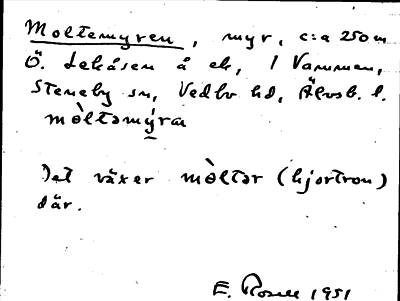 Moltemyren, myr, c:a 250 m
Ö. Lekåsen å ek, 1 Vammen,
Steneby sn, Vedbo hd, Älvsb. l.
mòltəmýra
Det växer mòltər (hjortron)
där.
E. Rosell 1951